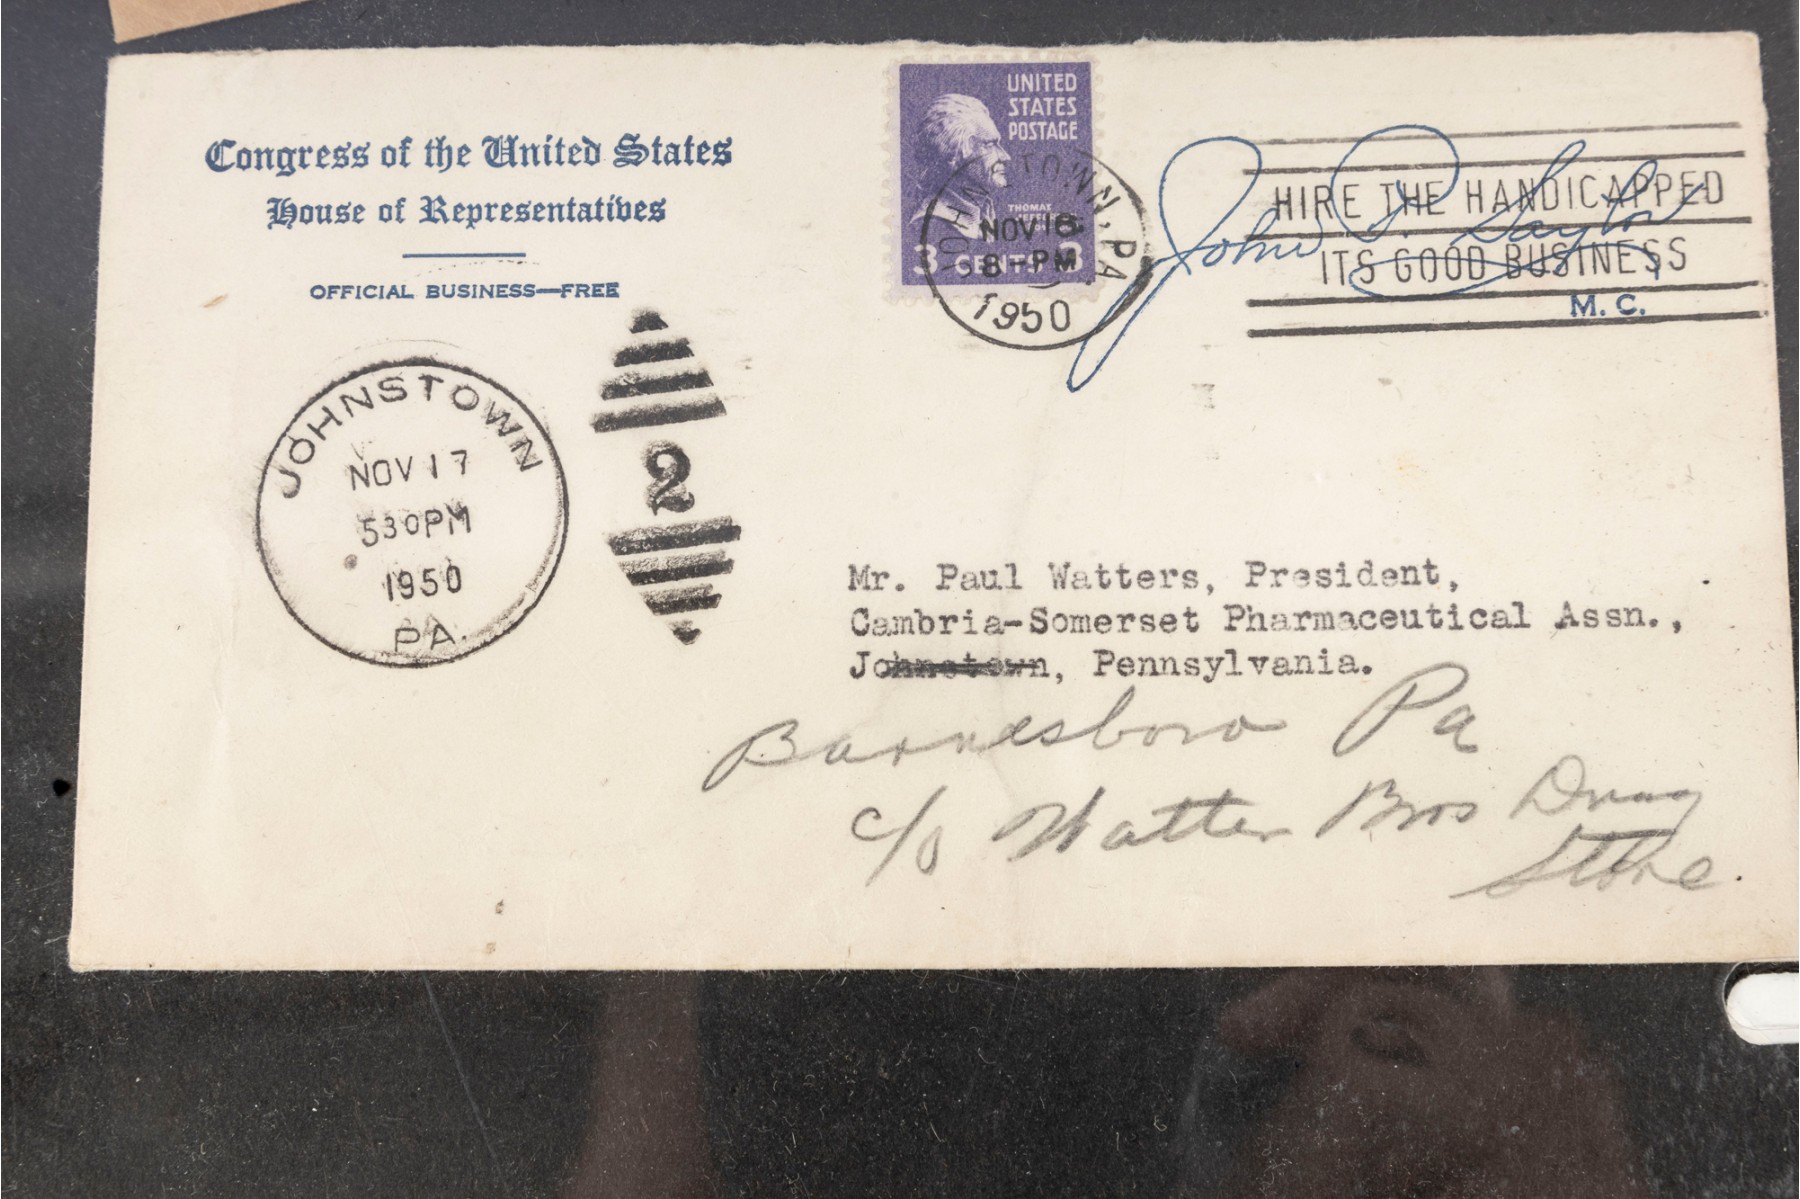 Congress of the United States
House of Representatives
OFFICIAL BUSINESS—FREE
UNITED
STATES
POSTAGE
THOMAS
3 CENTS 3
JOHNSTOWN, PA
NOV 16
8 - PM
1950
HIRE THE HANDICAPPED
ITS GOOD BUSINESS
John P. Saylor
M. C.
JOHNSTOWN
NOV 17
530PM
1950
PA.
2
Mr. Paul Watters, President,
Cambria-Somerset Pharmaceutical Assn.,
Johnstown, Pennsylvania.
Barnesboro Pa
c/o Watter Bros Drug
Store